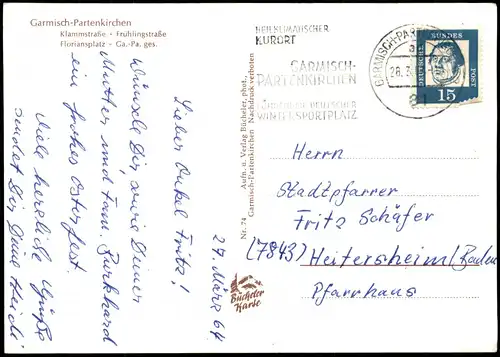 Garmisch-Partenkirchen
Klammstraße · Frühlingstraße
Floriansplatz · Ga.-Pa. ges.
27. März 64
Lieber Onkel Fritz!
Wünsche Dir, sowie Deiner
Mutter und Fam. Burkhard
ein frohes Osterfest.
Viele herzliche Grüße
sendet Dir Deine Heidi
Nr. 74
Aufn. u. Verlag Bücheler, phot.,
Garmisch-Partenkirchen Nachdruck verboten
Bücheler
Karte
HEILKLIMATISCHER
KURORT
GARMISCH-
PARTENKIRCHEN
DEUTSCHER
WINTERSPORTPLATZ
GARMISCH-PART
a
28.3.
DEUTSCHE
BUNDES
POST
15
Herrn
Stadtpfarrer
Fritz Schäfer
(7843) Heitersheim/Baden
Pfarrhaus